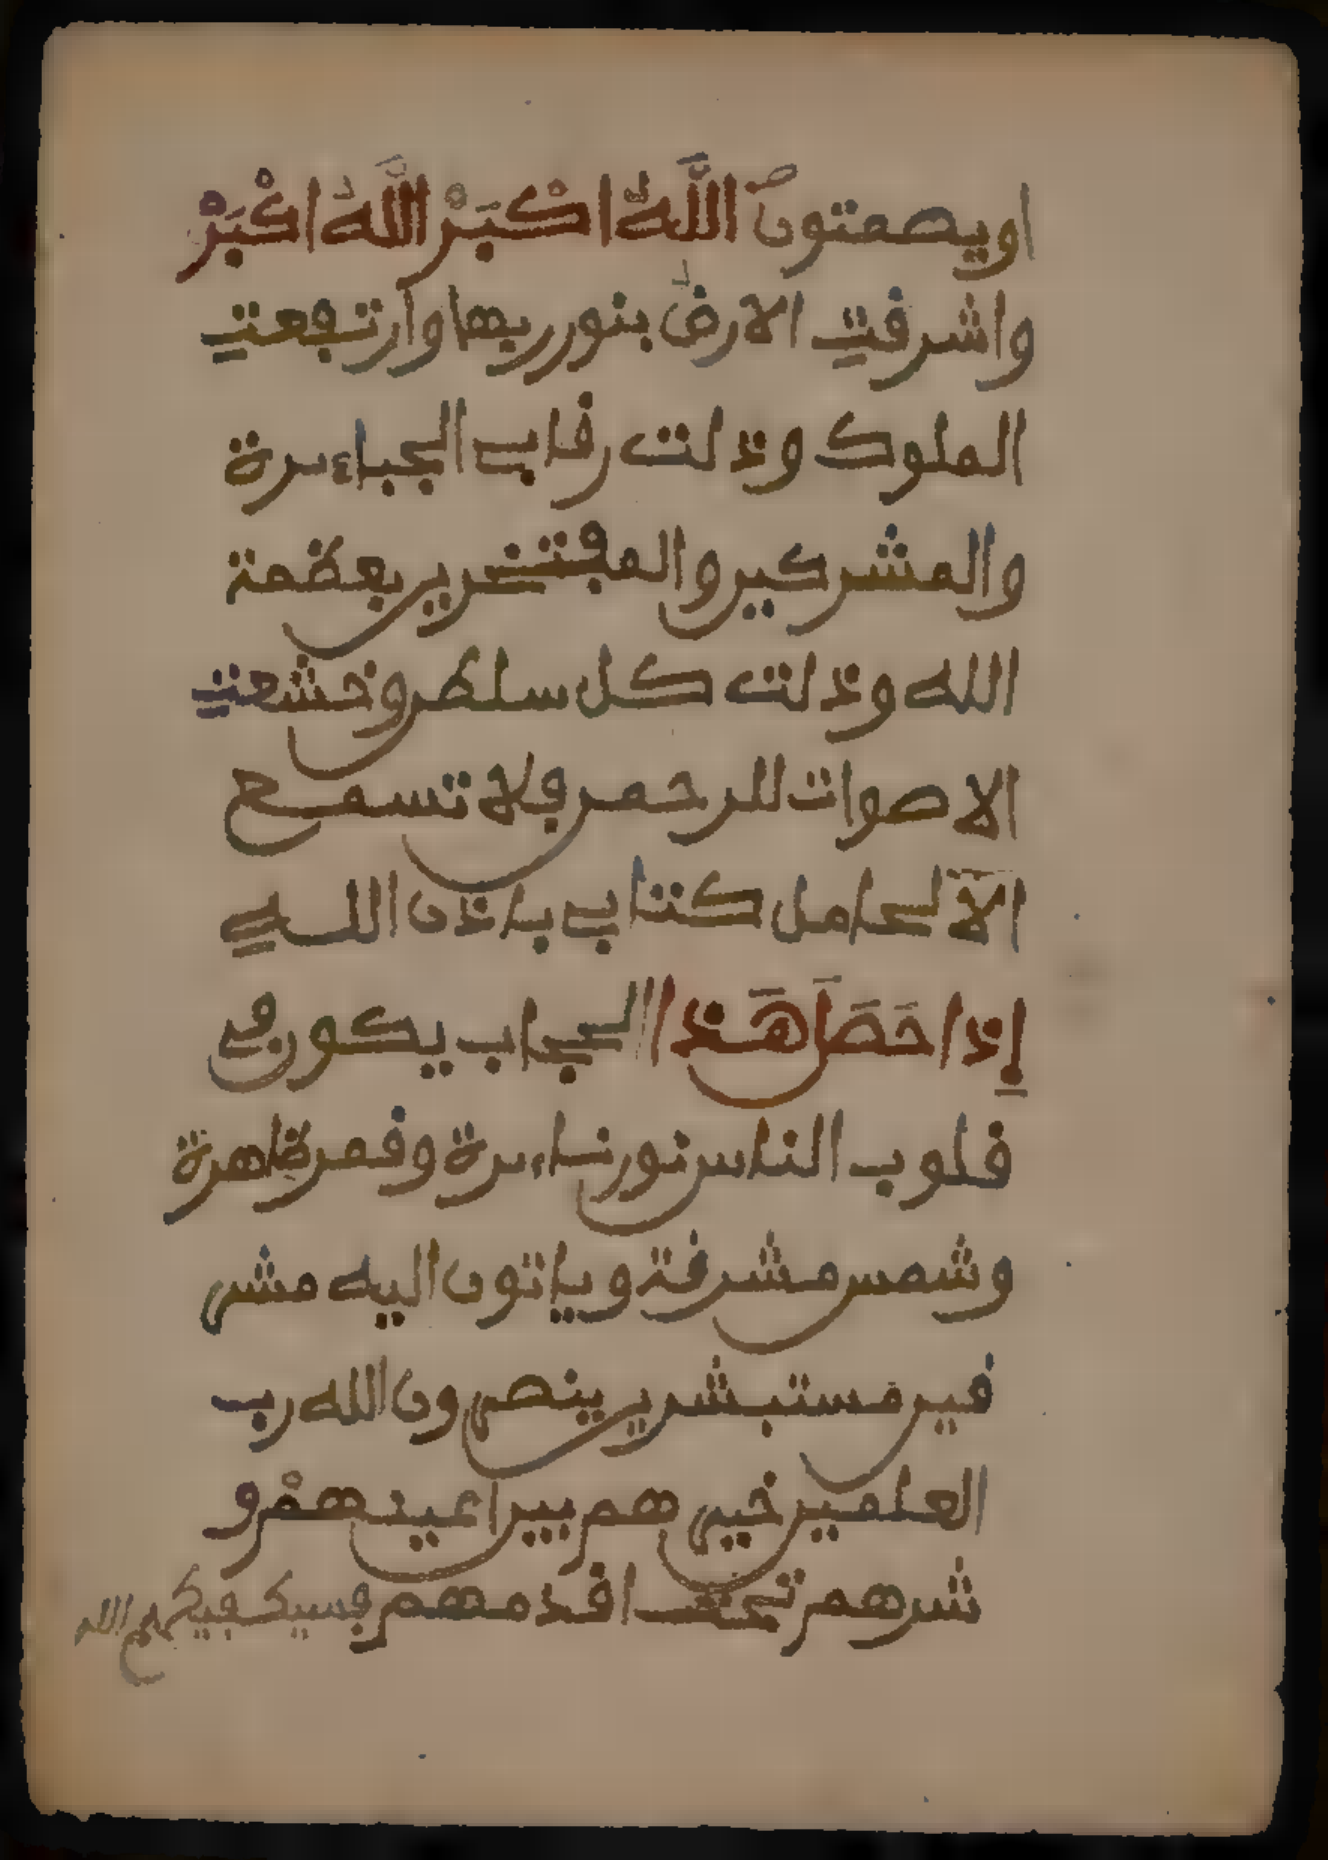 اويصمتون اللَّهُ اكْبَرْ اللَّهُ اكْبَرْ
واشرقت الارض بنور ربها وارتفعت
الملوك وذلت رقاب الجباءبرة
والمشركين والمفتخرين بعظمة
الله وذلت كل سلطن وخشعت
الاصوات للرحمن فلا تسمع
الا لحامل كتابي باذن الله
إذا حَصَّنَ هَذا الحجاب يكون في
قلوب الناس نور نساءرة وقمر ظاهرة
وشمس مشرقة وياتون اليه مشر
قين مستبشرين ينصرون الله رب
العلمين خيرهم بين اعينهمْ و
شرهم تحت اقدمهم فسيكفيكهم الله